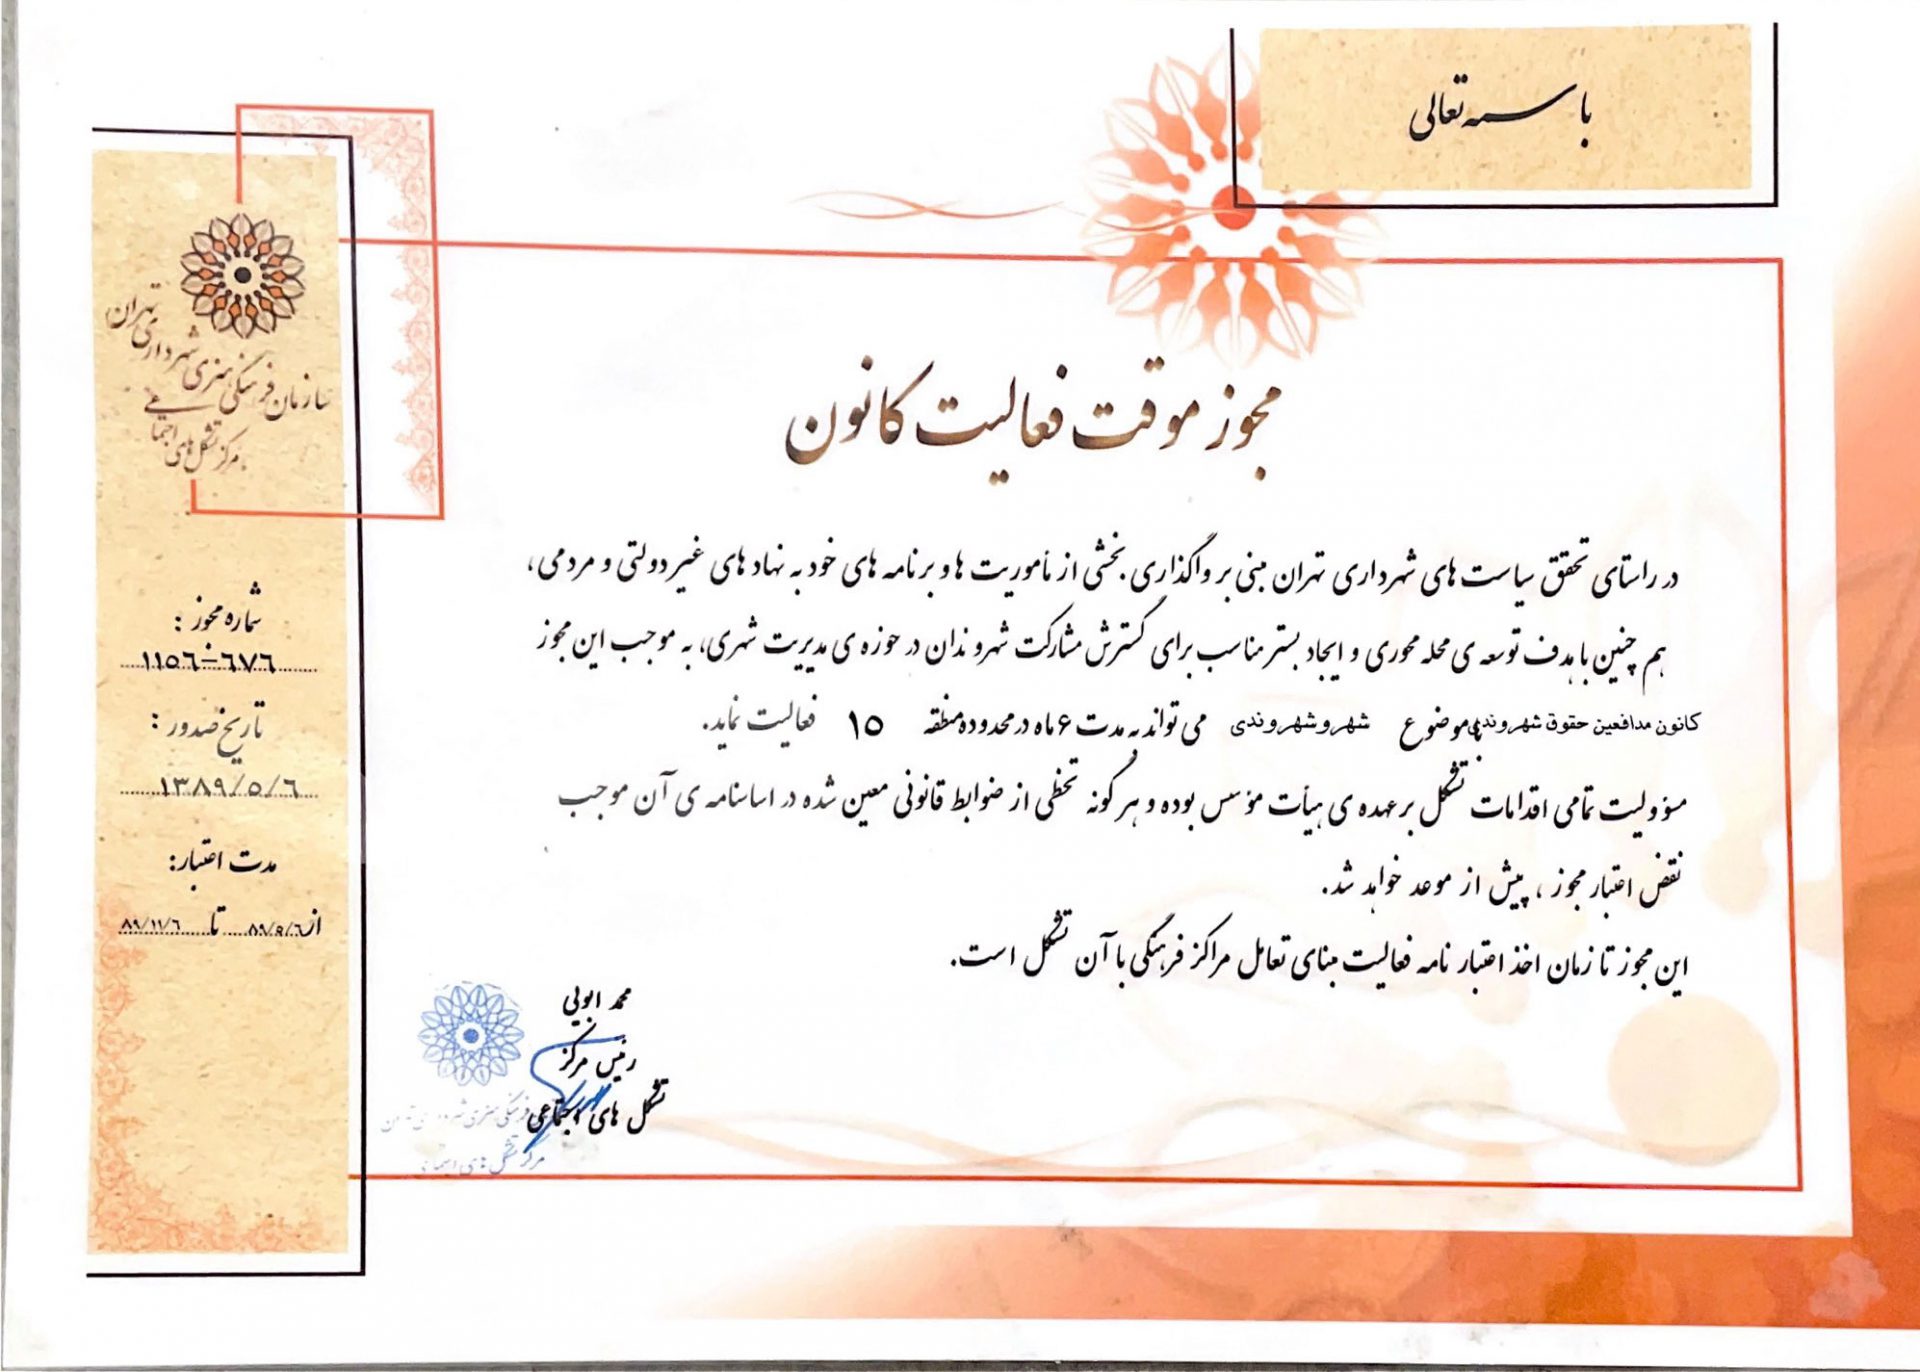 باسمه تعالی
سازمان فرهنگی هنری شهرداری تهران
مرکز تشکل‌های اجتماعی
مجوز موقت فعالیت کانون
در راستای تحقق سیاست های شهرداری تهران مبنی بر واگذاری بخشی از مأموریت ها و برنامه های خود به نهاد های غیر دولتی و مردمی،
هم چنین با هدف توسعه ی محله محوری و ایجاد بستر مناسب برای گسترش مشارکت شهروندان در حوزه ی مدیریت شهری، به موجب این مجوز
کانون مدافعین حقوق شهروندی با موضوع شهر و شهروندی می تواند به مدت ۶ ماه در محدوده منطقه ۱۵ فعالیت نماید.
مسؤولیت تمامی اقدامات تشکل بر عهده ی هیأت مؤسس بوده و هر گونه تخطی از ضوابط قانونی معین شده در اساسنامه ی آن موجب
نقض اعتبار مجوز ، پیش از موعد خواهد شد.
این مجوز تا زمان اخذ اعتبار نامه فعالیت مبنای تعامل مراکز فرهنگی با آن تشکل است.
شماره مجوز :
۱۱۵۶-۶۷۶
تاریخ صدور :
۱۳۸۹/۵/۶
مدت اعتبار:
از ۸۹/۵/۶ تا ۸۹/۱۱/۶
محمد ابویی
رئیس مرکز
تشکل های اجتماعی
فرهنگی هنری شهرداری تهران
مرکز تشکل های اجتماعی